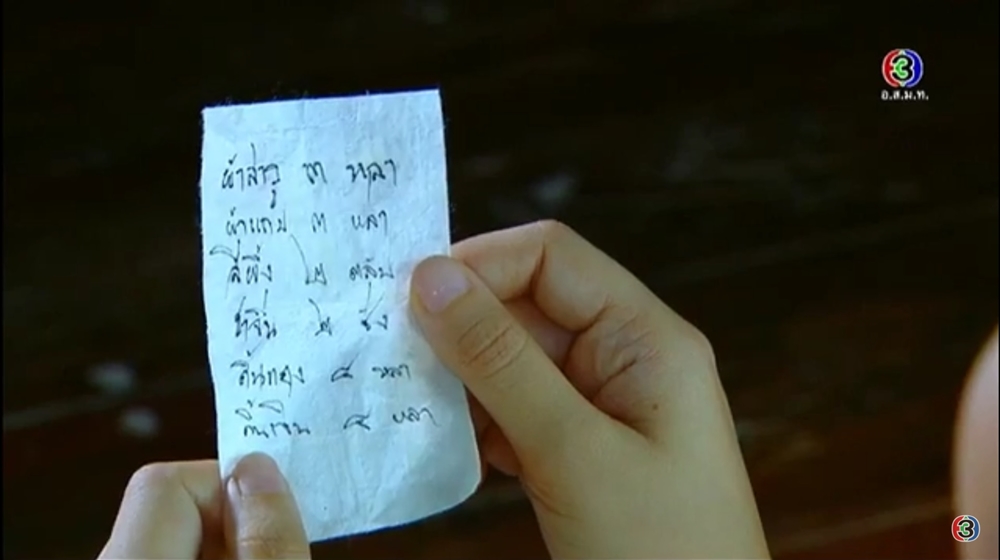 อ.ส.ม.ท.
ผ้าลาวู ๓ หลา
ผ้าแถบ ๓ หลา
สีผึ้ง ๒ ตลับ
ชาจีน ๒ ชั่ง
ดิ้นทอง ๔ หลา
ดิ้นเงิน ๔ หลา